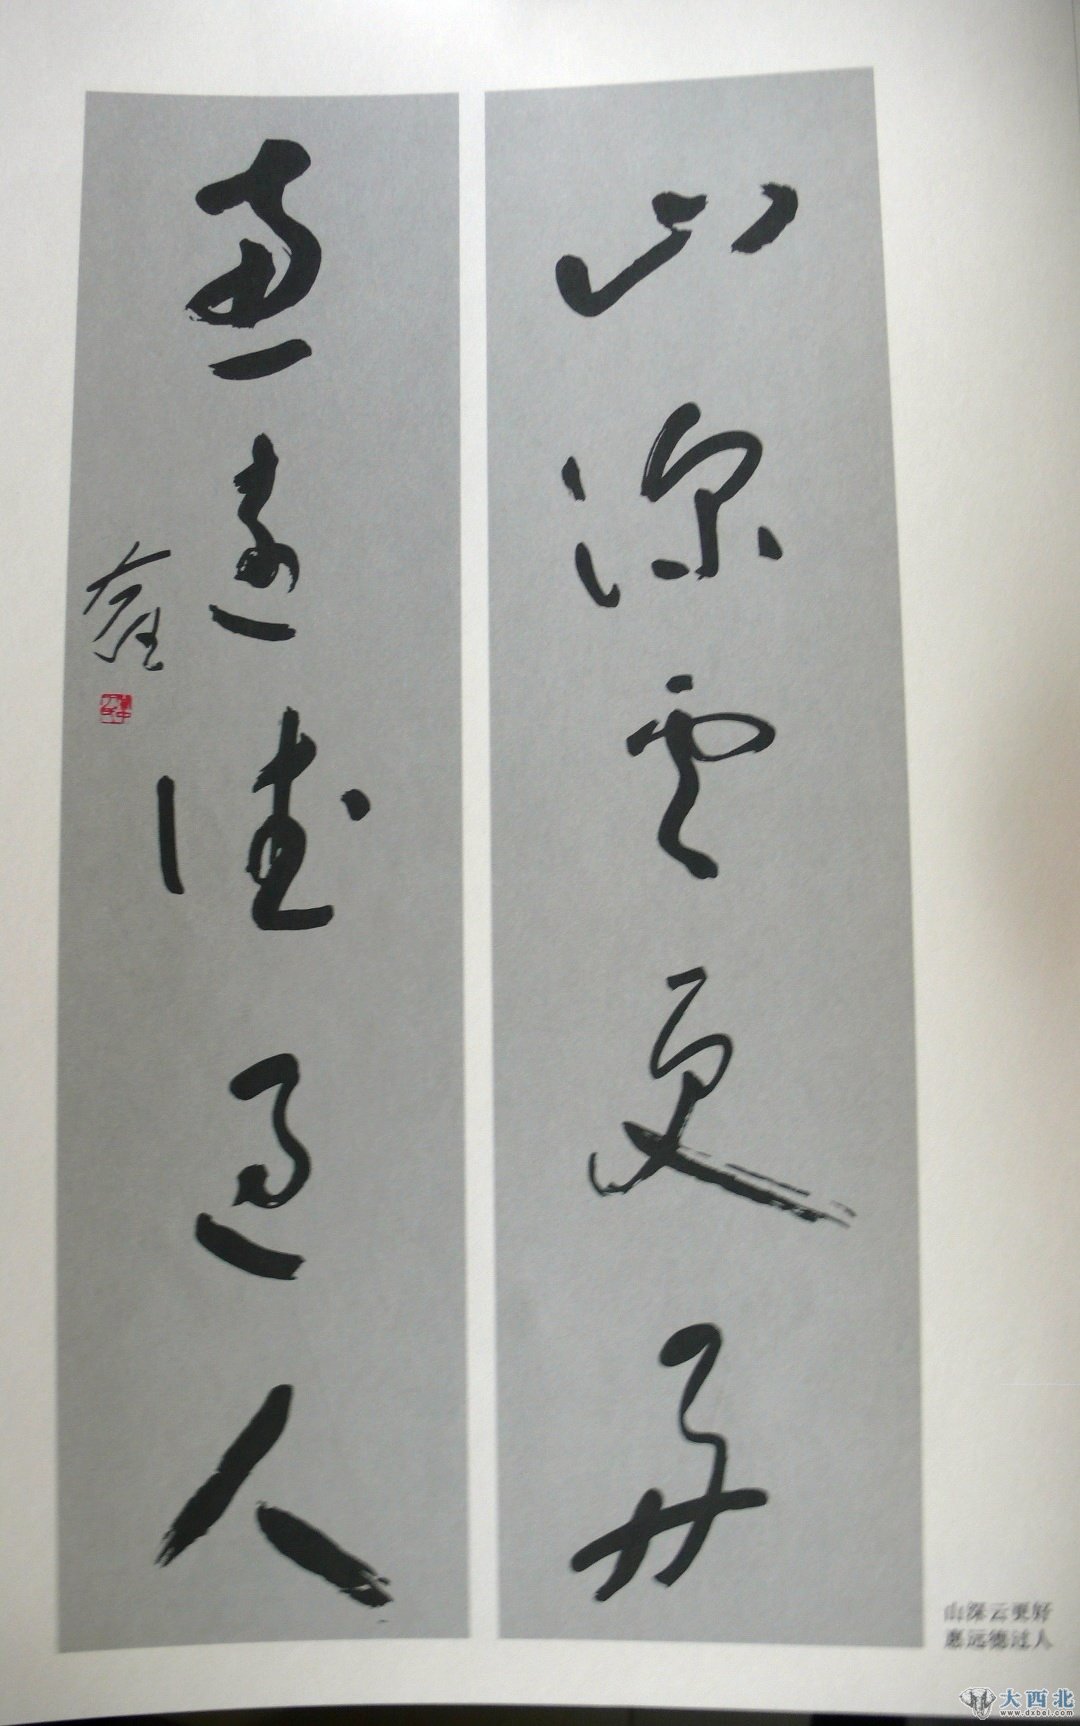 山深雲更好
惠遠德過人
山深云更好
惠远德过人
大西北
www.dxbei.com